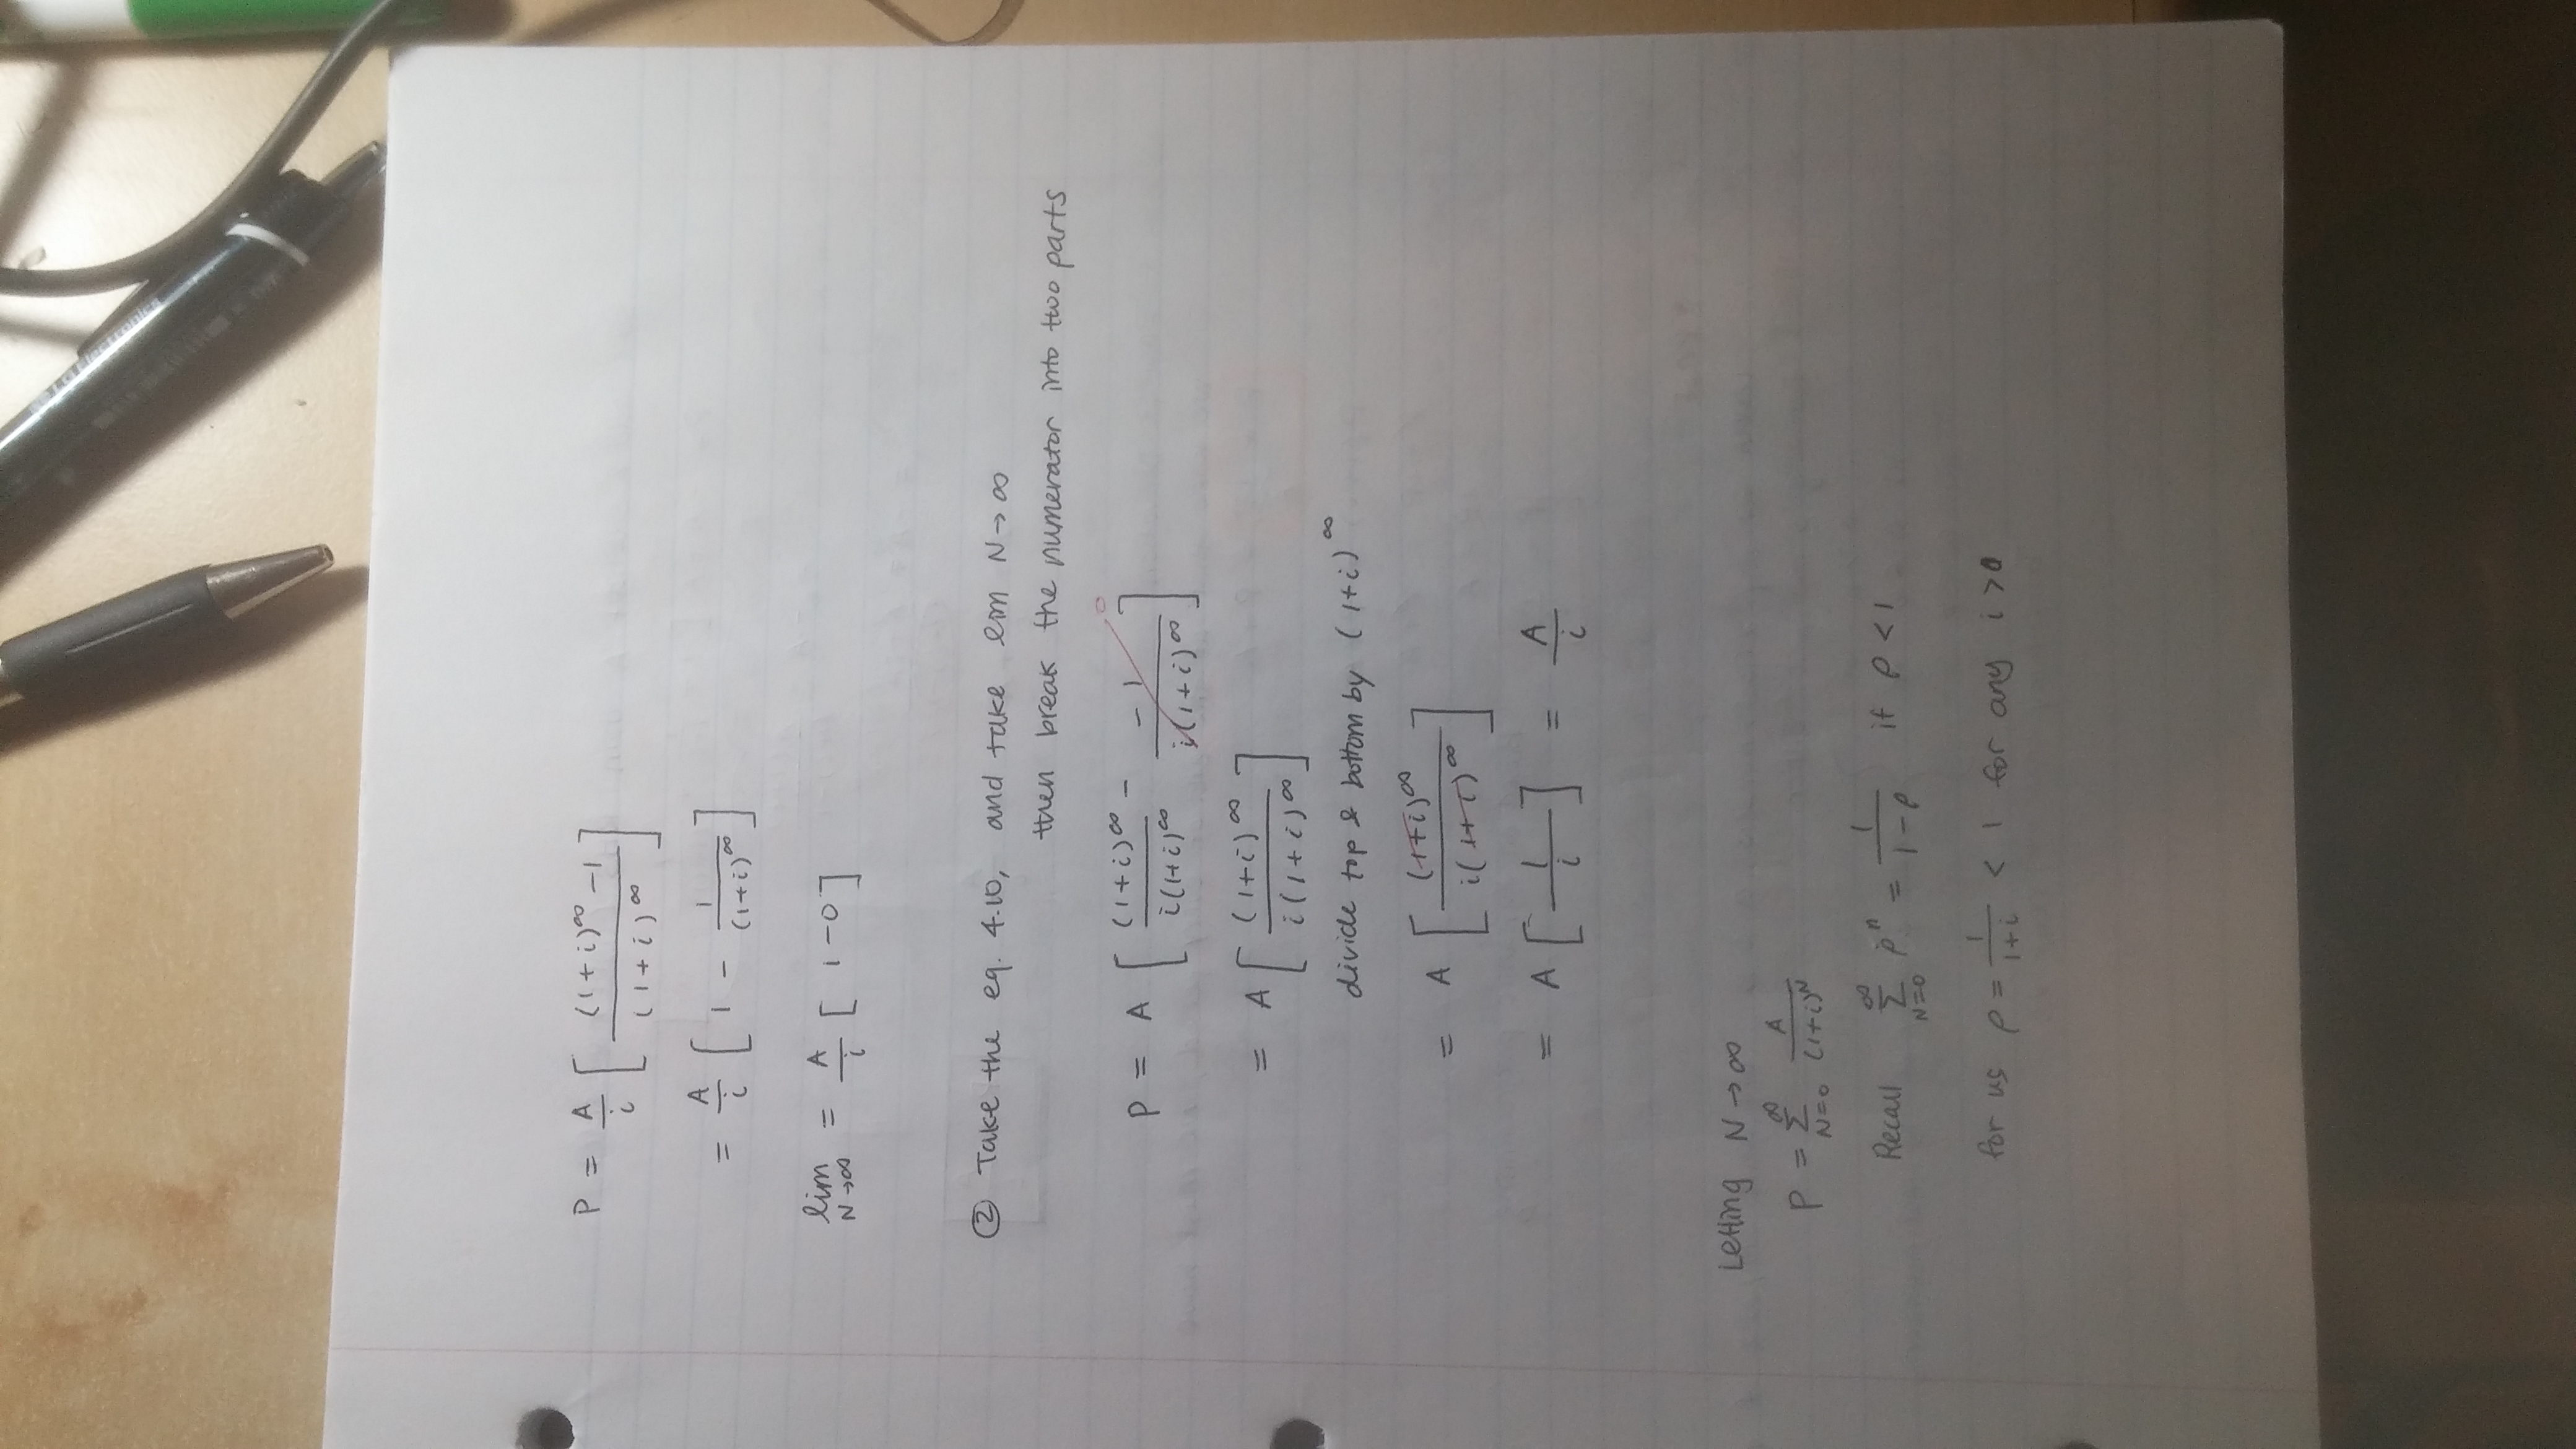 P = A/i [ ((1+i)^∞ -1) / (1+i)^∞ ]
= A/i [ 1 - 1/(1+i)^∞ ]
lim N→∞ = A/i [ 1-0 ]
② Take the eq. 4.10, and take lim N→∞
then break the numerator into two parts
P = A [ (1+i)^∞ / i(1+i)^∞ - -1 / i(1+i)^∞ ] 0
= A [ (1+i)^∞ / i(1+i)^∞ ]
divide top & bottom by (1+i)^∞
= A [ (1+i)^∞ / i(1+i)^∞ ]
= A [ 1/i ] = A/i
Letting N→∞
P = ∑_{N=0}^∞ A/(1+i)^N
Recall ∑_{N=0}^∞ ρ^n = 1/(1-ρ) if ρ<1
for us ρ = 1/(1+i) < 1 for any i>0